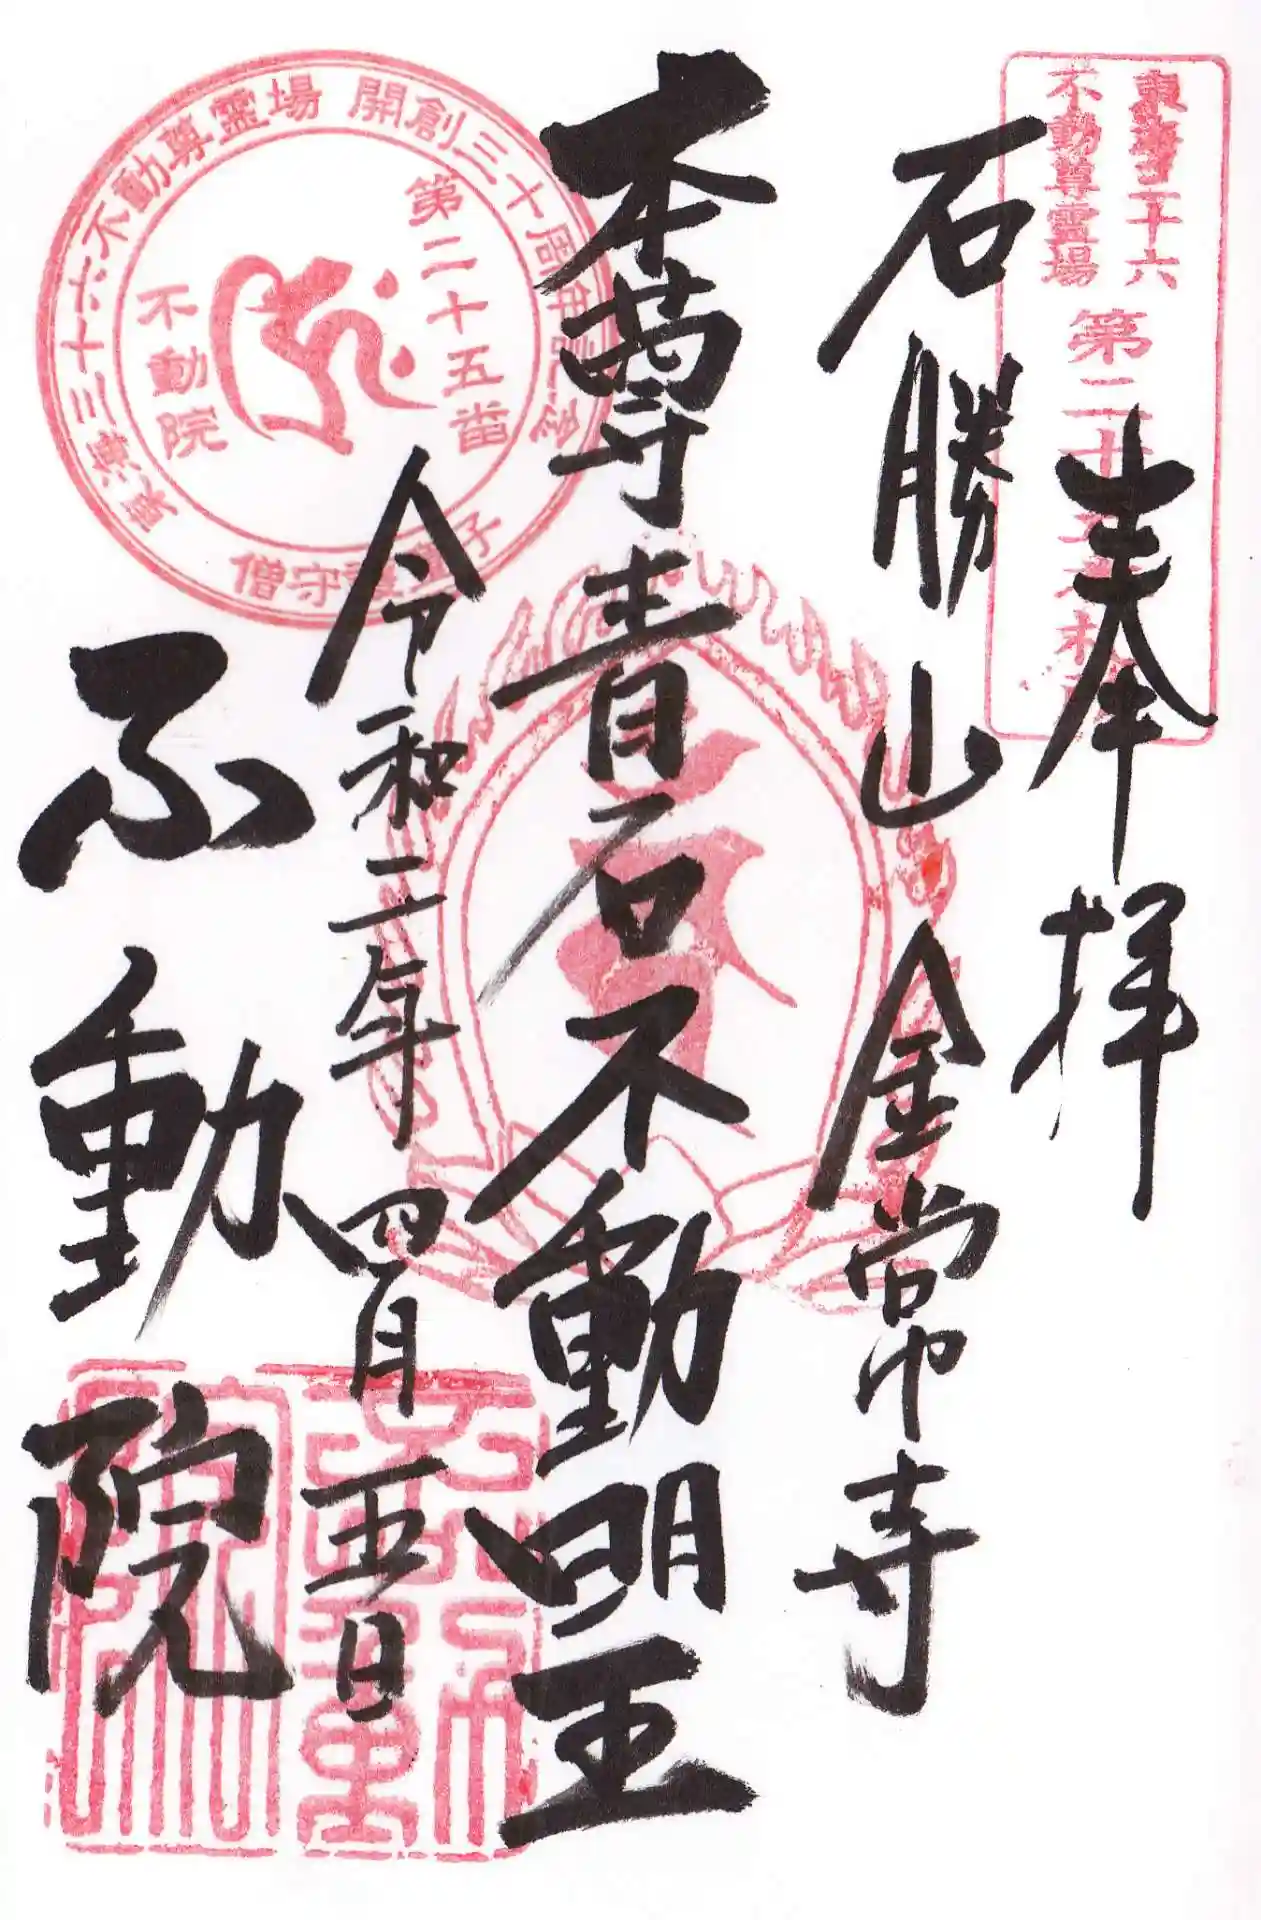 東海三十六
不動尊霊場
第二十五番札所
奉拝
石勝山金常寺
本尊青石不動明王
令和二年四月五日
不動院
東海三十六不動尊霊場 開創三十周年記念
第二十五番
不動院